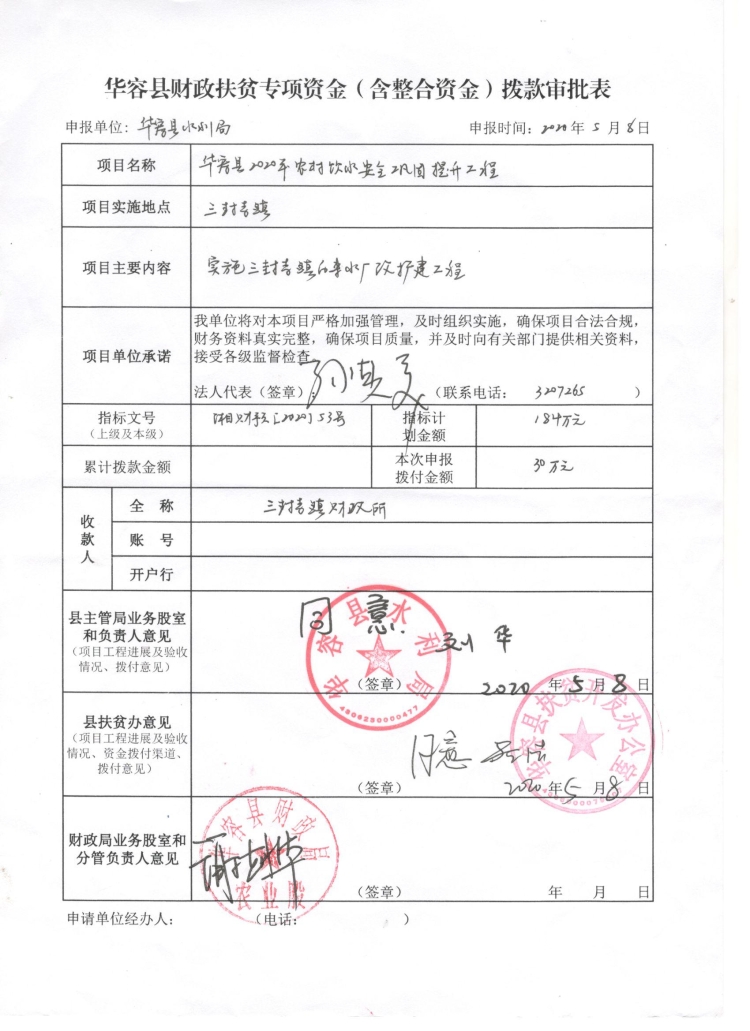 华容县财政扶贫专项资金（含整合资金）拨款审批表
申报单位：华容县水利局 申报时间：2020年5月8日
项目名称 华容县2020年农村饮水安全巩固提升工程
项目实施地点 三封寺镇
项目主要内容 实施三封寺镇水厂改扩建工程
项目单位承诺
我单位将对本项目严格加强管理，及时组织实施，确保项目合法合规，
财务资料真实完整，确保项目质量，并及时向有关部门提供相关资料，
接受各级监督检查
法人代表（签章）： （联系电话： 3207265 ）
指标文号
（上级及本级）
湘财预[2020]53号
指标计
划金额
184万元
累计拨款金额
本次申报
拨付金额
30万元
收款人
全 称 三封寺镇财政所
账 号
开户行
县主管局业务股室
和负责人意见
（项目工程进展及验收
情况、拨付意见）
同意 刘华
华容县水利局
4306230000477
（签章） 2020年5月8日
县扶贫办意见
（项目工程进展及验收
情况、资金拨付渠道、
拨付意见）
同意
华容县扶贫开发办公室
（签章） 2020年5月8日
财政局业务股室和
分管负责人意见
华容县财政局
农业股
（签章） 年 月 日
申请单位经办人： （电话： ）